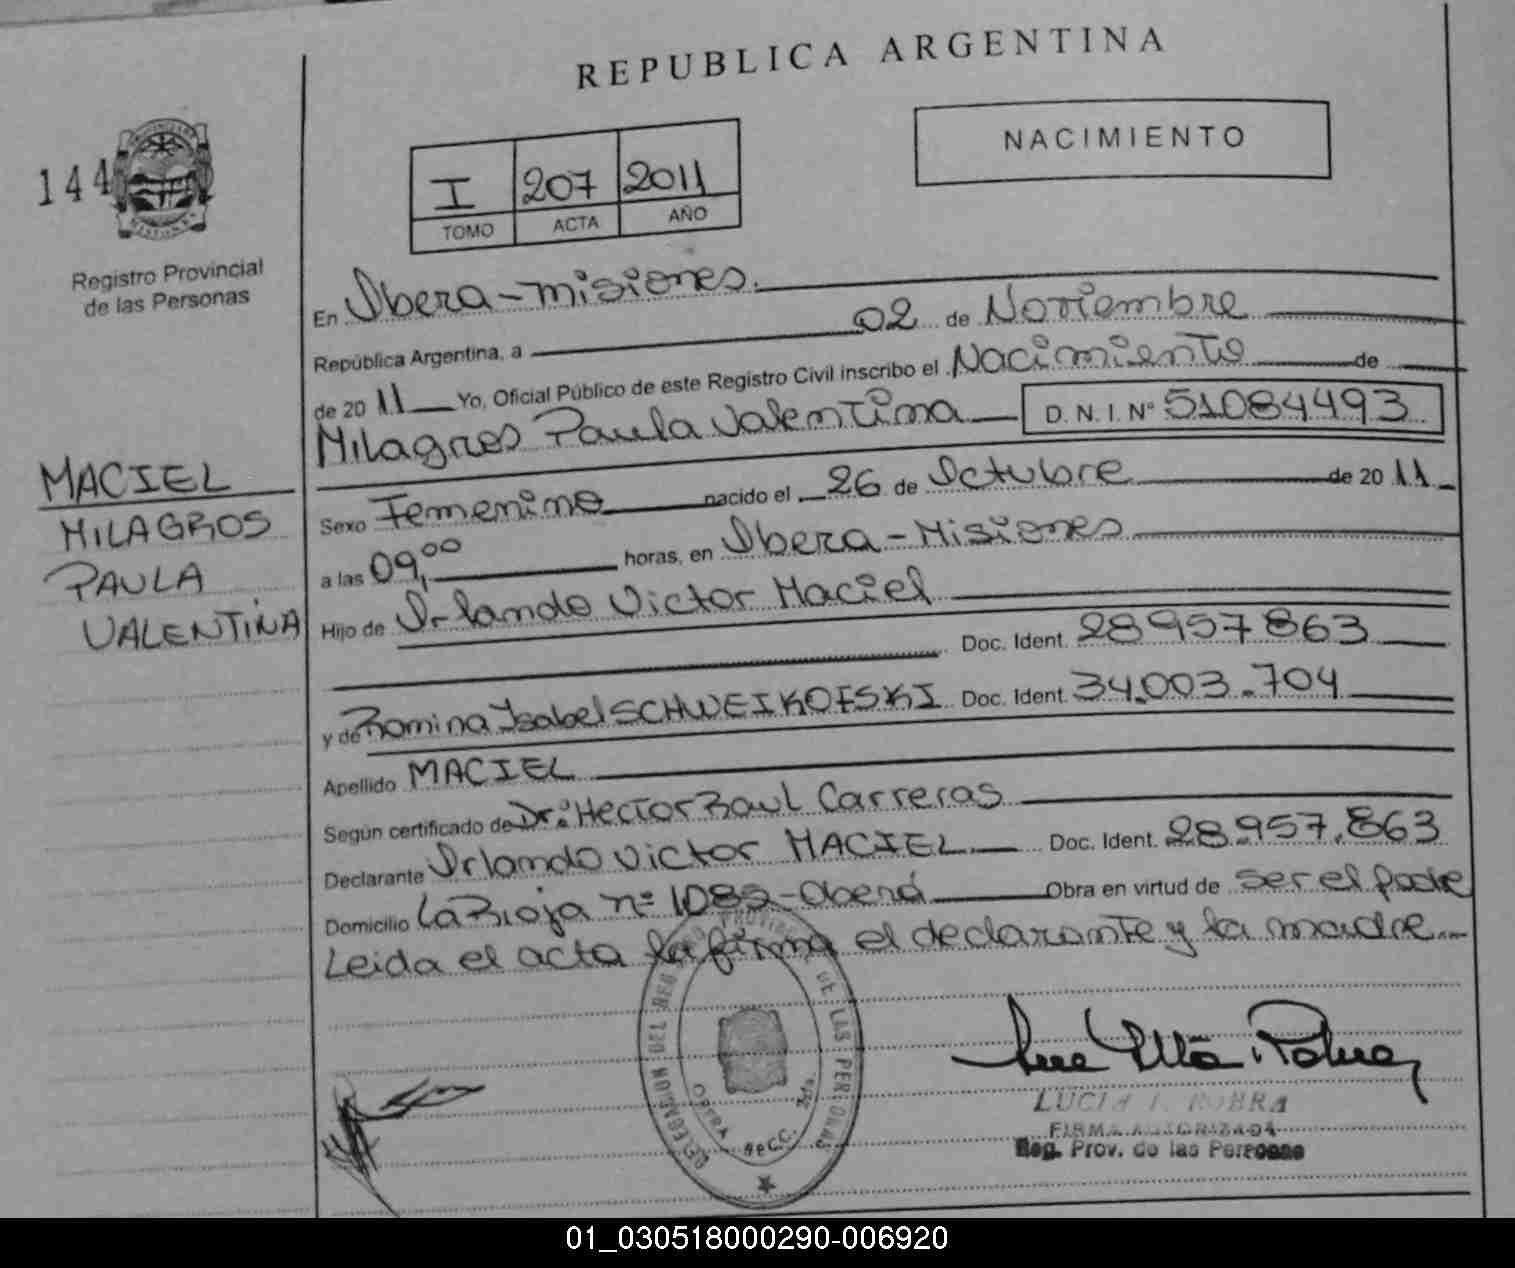 REPUBLICA ARGENTINA
NACIMIENTO
144
I 207 2011
TOMO ACTA AÑO
Registro Provincial
de las Personas
En Obera-misiones.
República Argentina, a 02 de Noviembre
de 2011 Yo, Oficial Público de este Registro Civil inscribo el Nacimiento de
Milagros Paula Valentina D.N.I. Nº 51084493
MACIEL
MILAGROS
PAULA
VALENTINA
Sexo Femenino nacido el 26 de Octubre de 2011
a las 09,00 horas, en Obera-Misiones
Hijo de Orlando Victor Maciel
Doc. Ident. 28957863
y de Romina Ysabel SCHWEIKOFSKI Doc. Ident. 34.003.704
Apellido MACIEL
Según certificado de Dr: Hector Raul Carreras
Declarante Orlando Victor MACIEL Doc. Ident. 28.957.863
Domicilio La Rioja nº 1082-Oberá Obra en virtud de ser el padre
Leida el acta la firma el declarante y la madre
DELEGACION DEL REG. PROVINCIAL DE LAS PERSONAS
OBERA Secc. 2da.
LUCIA I. ROBRA
FIRMA AUTORIZADA
Reg. Prov. de las Personas
01_030518000290-006920